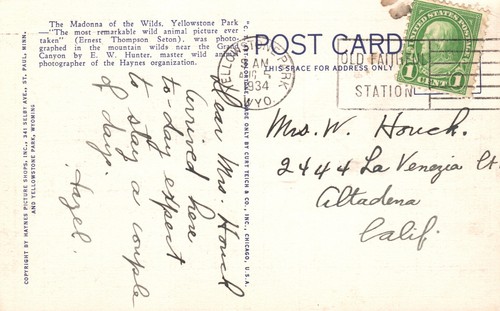 The Madonna of the Wilds, Yellowstone Park
—"The most remarkable wild animal picture ever
taken" (Ernest Thompson Seton), was photo-
graphed in the mountain wilds near the Grand
Canyon by E. W. Hunter, master wild animal
photographer of the Haynes organization.
COPYRIGHT BY HAYNES PICTURE SHOPS, INC., 341 SELBY AVE., ST. PAUL, MINN.
AND YELLOWSTONE PARK, WYOMING
Dear Mrs. Houck
Arrived here
to-day expect
to stay a couple
of days.
Hazel.
MADE ONLY BY CURT TEICH & CO., INC., CHICAGO, U.S.A.
POST CARD
THIS SPACE FOR ADDRESS ONLY
YELLOWSTONE PARK
AUG
1934
WYO.
OLD FAITHFUL
STATION
UNITED STATES POSTAGE
1 CENT 1
Mrs. W. Houck.
2444 La Venezia Ct.
Altadena
Calif.